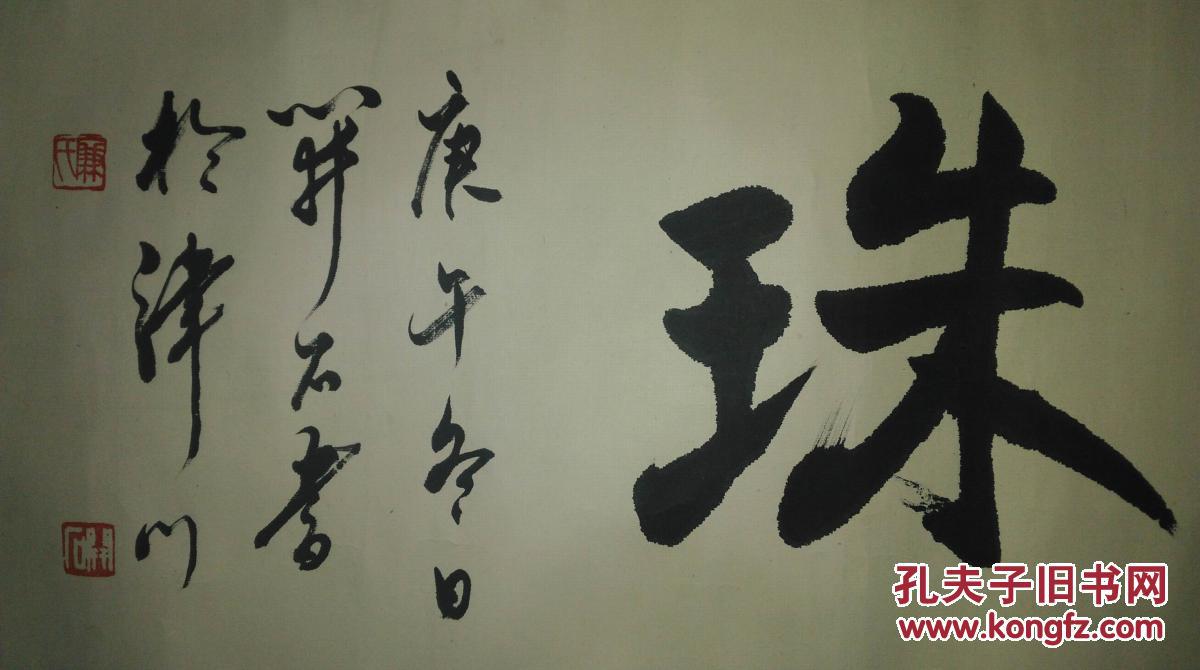 珠
庚午冬日
開石書
於津門
開石
孔夫子旧书网
www.kongfz.com